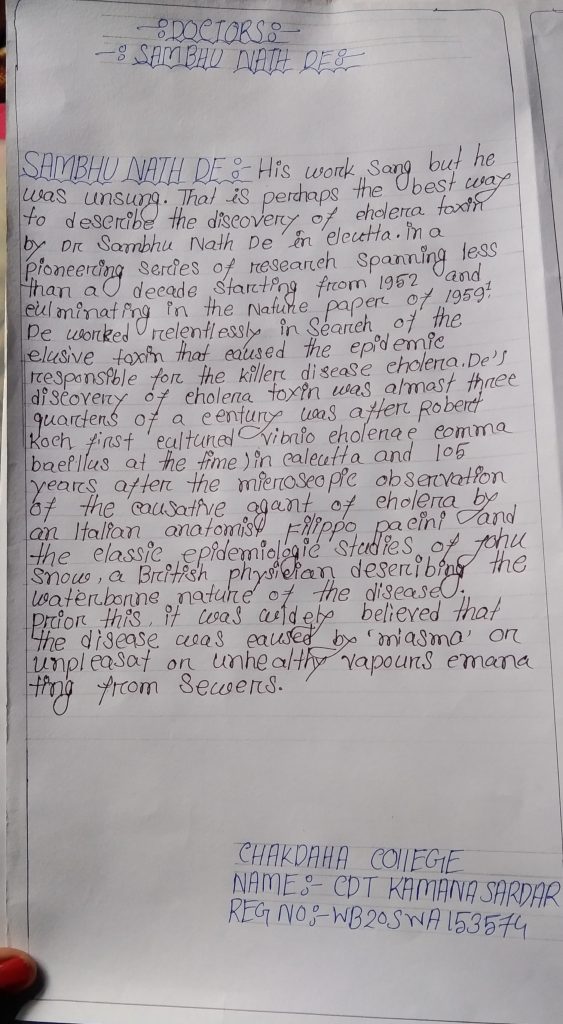 -: DOCTORS :-
-: SAMBHU NATH DE :-
SAMBHU NATH DE :- His work sang but he
was unsung. That is perhaps the best way
to describe the discovery of cholera toxin
by Dr Sambhu Nath De in clcutta. in a
pioneering series of research spanning less
than a decade starting from 1952 and
culminating in the Nature paper of 1959.
De worked relentlessly in Search of the
elusive toxin that caused the epidemic
responsible for the killer disease cholera. De's
discovery of cholera toxin was almost three
quarters of a century was after Robert
Koch first cultured vibrio cholerae comma
bacillus at the time) in calcutta and 105
years after the microscopic observation
of the causative agant of cholera by
an Italian anatomist Filippo pacini and
the classic epidemiologic studies of John
Snow, a British physician describing the
waterborne nature of the disease.
prior this, it was widely believed that
the disease was caused by 'miasma' or
unpleasat or unhealthy vapours emana
ting from Sewers.
CHAKDAHA COllEGE
NAME :- CDT KAMANA SARDAR
REG NO :- WB20SWA153574